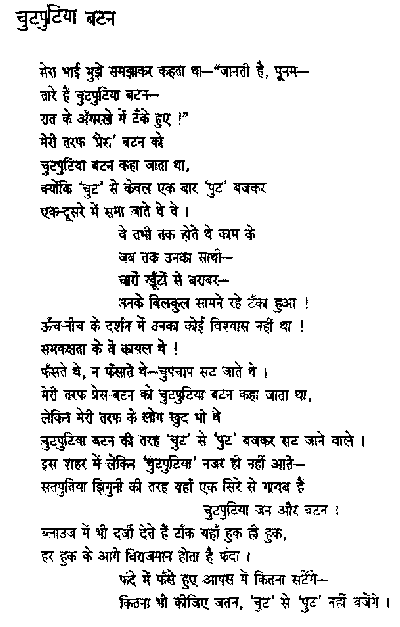 चुटपुटिया बटन
मेरा भाई मुझे समझाकर कहता था—"जानती है, पूनम—
तारे हैं चुटपुटिया बटन—
रात के अँगरखे में टँके हुए!"
मेरी तरफ 'प्रेस' बटन को
चुटपुटिया बटन कहा जाता था,
क्योंकि 'चुट' से केवल एक बार 'पुट' बजकर
एक-दूसरे में समा जाते थे वे।
वे तभी तक होते थे काम के
जब तक उनका साथी—
चारों खूँटों से बराबर—
उनके बिलकुल सामने रहे टँका हुआ!
ऊँच-नीच के दर्शन में उनका कोई विश्वास नहीं था!
समकक्षता के वे कायल थे!
फँसते थे, न फँसाते थे—चुपचाप सट जाते थे।
मेरी तरफ प्रेस-बटन को चुटपुटिया बटन कहा जाता था,
लेकिन मेरी तरफ के लोग खुद भी थे
चुटपुटिया बटन की तरह 'चुट' से 'पुट' बजकर सट जाने वाले।
इस शहर में लेकिन 'चुटपुटिया' नजर ही नहीं आते—
सतपुतिया झिगुनी की तरह यहाँ एक सिरे से गायब हैं
चुटपुटिया जन और बटन!
ब्लाउज में भी दर्जी देते हैं टाँक यहाँ हुक ही हुक,
हर हुक के आगे विराजमान होता है फंदा।
फंदे में फँसे हुए आपस में कितना सटेंगे—
कितना भी कीजिए जतन, 'चुट' से 'पुट' नहीं बजेंगे।